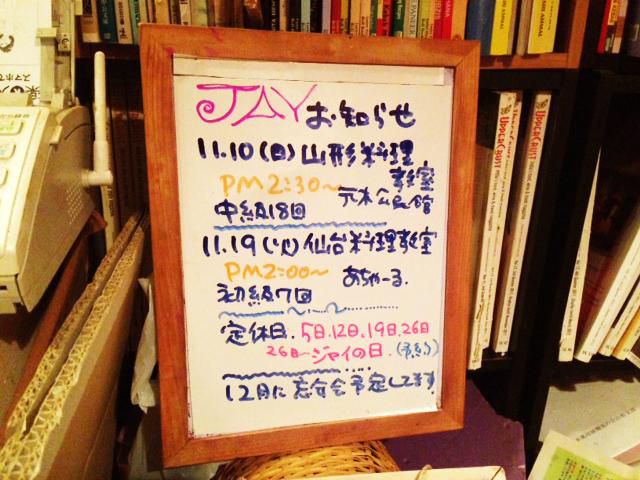 JAY お知らせ
11.10(日)山形料理
教室
PM2:30〜 元木公民館
中級18回
11.19(火)仙台料理教室
PM2:00〜 あちゃーる.
初級7回
定休日.5日.12日.19日.26日
26日〜ジャイの日.(予約)
12月に忘年会予定してます
UPPERCRUST
UPPERCRUST